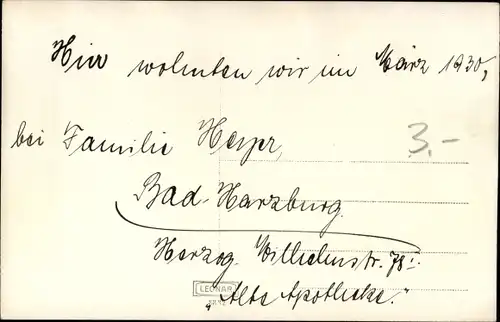 Hier wohnten wir im März 1930,
bei Familie Heyer,
3.-
Bad-Harzburg.
Herzog. Wilhelmstr. 78 I.
LEONAR
"Alte Apotheke."